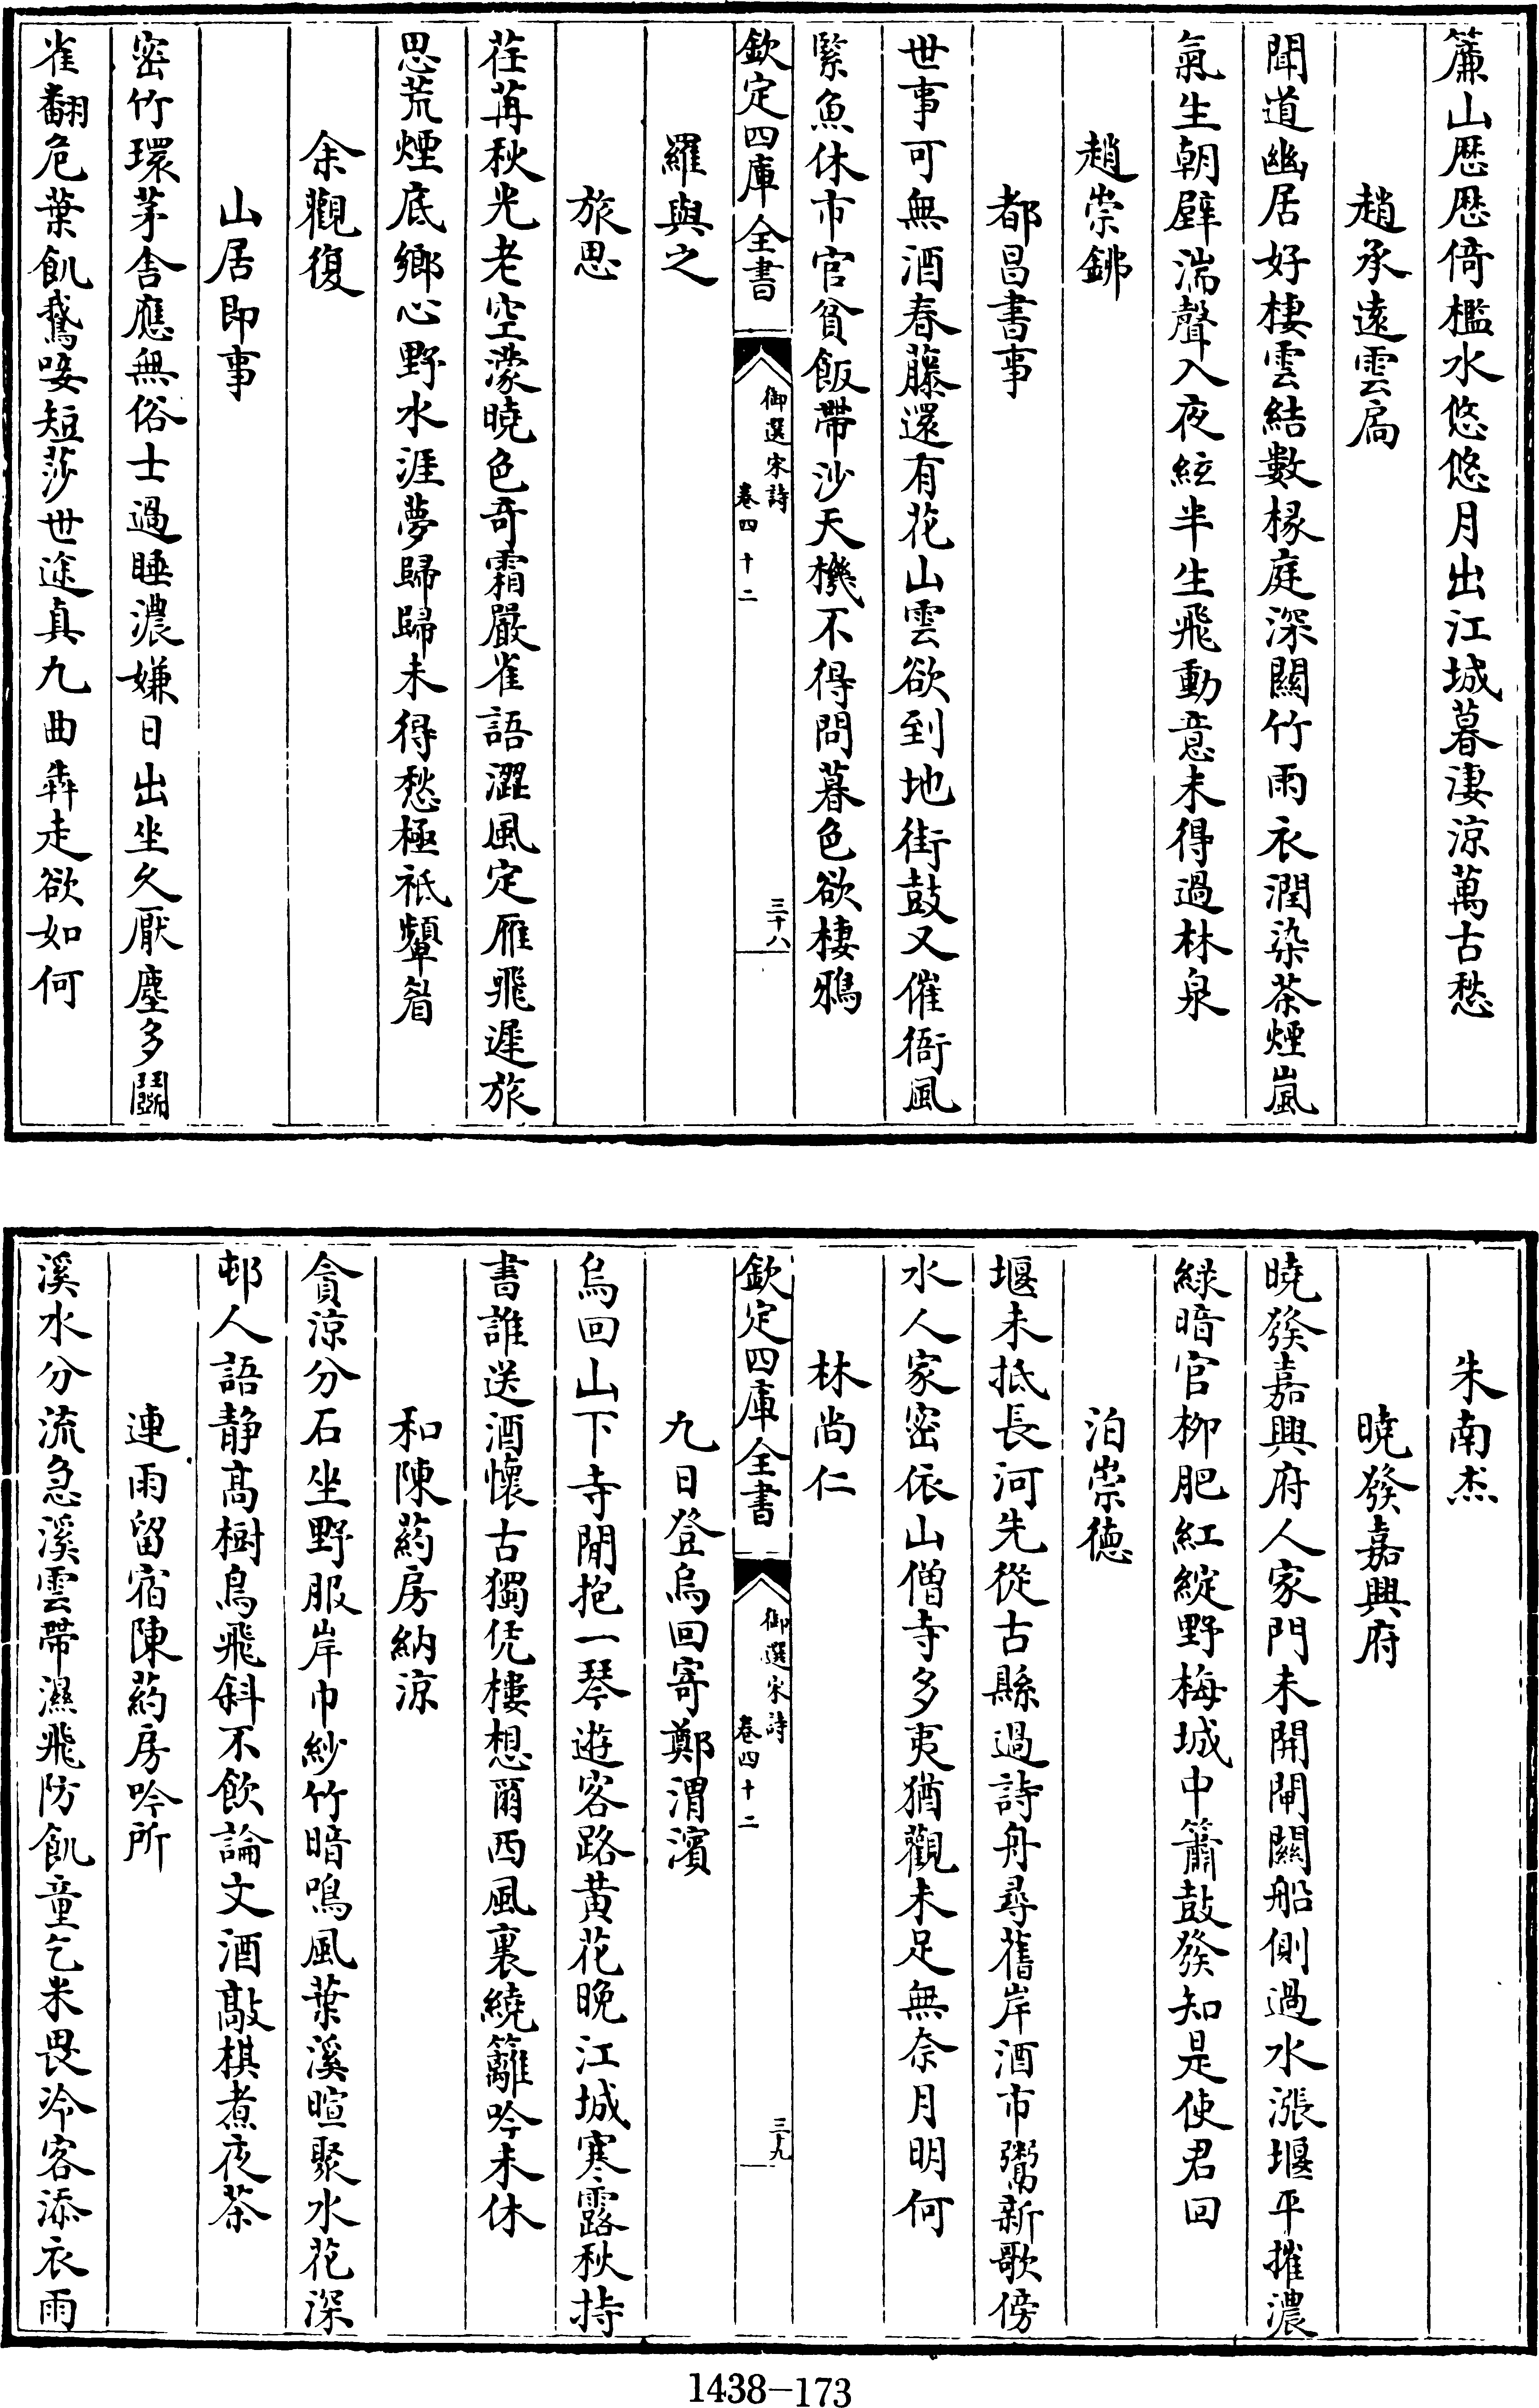 簾山歷歷倚檻水悠悠月出江城暮淒涼萬古愁
趙承遠雲扃
聞道幽居好棲雲結數椽庭深闗竹雨衣潤染茶煙嵐
氣生朝壁湍聲入夜絃半生飛動意未得過林泉
趙崇鉘
都昌書事
世事可無酒春藤還有花山雲欲到地街鼓又催衙風
緊魚休市官貧飯帶沙天機不得問暮色欲棲鴉
欽定四庫全書
御選宋詩
卷四十二
三十八
羅與之
旅思
荏苒秋光老空濛曉色奇霜嚴雀語澀風定雁飛遲旅
思荒煙底鄉心野水涯夢歸歸未得愁極祗顰眉
余觀復
山居即事
密竹環茅舍應無俗士過睡濃嫌日出坐久厭塵多鬬
雀翻危葉飢鵞唼短莎世途真九曲犇走欲如何
朱南杰
曉發嘉興府
曉發嘉興府人家門未開閘闗船側過水漲堰平摧濃
緑暗官栁肥紅綻野梅城中簫鼓發知是使君回
泊崇徳
堰未抵長河先從古縣過詩舟尋舊岸酒市鬻新歌傍
水人家密依山僧寺多夷猶觀未足無奈月明何
林尚仁
欽定四庫全書
御選宋詩
卷四十二
三十九
九日登烏回寄鄭渭濱
烏回山下寺閒抱一琴遊客路黄花晚江城寒露秋持
書誰送酒懷古獨凭樓想爾西風裏繞籬吟未休
和陳葯房納涼
貪涼分石坐野服岸巾紗竹暗鳴風葉溪暄聚水花深
邨人語静髙樹鳥飛斜不飲論文酒敲棋煮夜茶
連雨留宿陳葯房吟所
溪水分流急溪雲帶濕飛防飢童乞米畏冷客添衣雨
1438-173